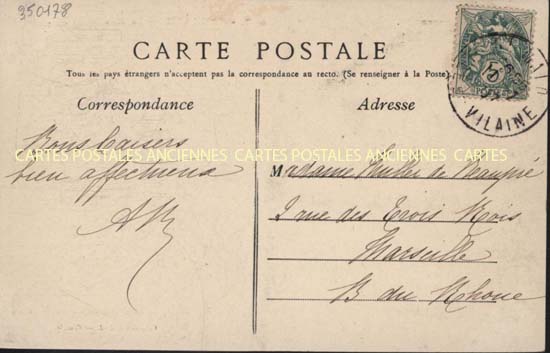 350178
CARTE POSTALE
Tous les pays étrangers n'acceptent pas la correspondance au recto. (Se renseigner à la Poste)
Correspondance
Adresse
VILAINE
Bons baisers
CARTES POSTALES ANCIENNES CARTES POSTALES ANCIENNES CARTES
bien affectueux
Madame de Beaupré
2 rue des Trois Rois
Marseille
B du Rhone